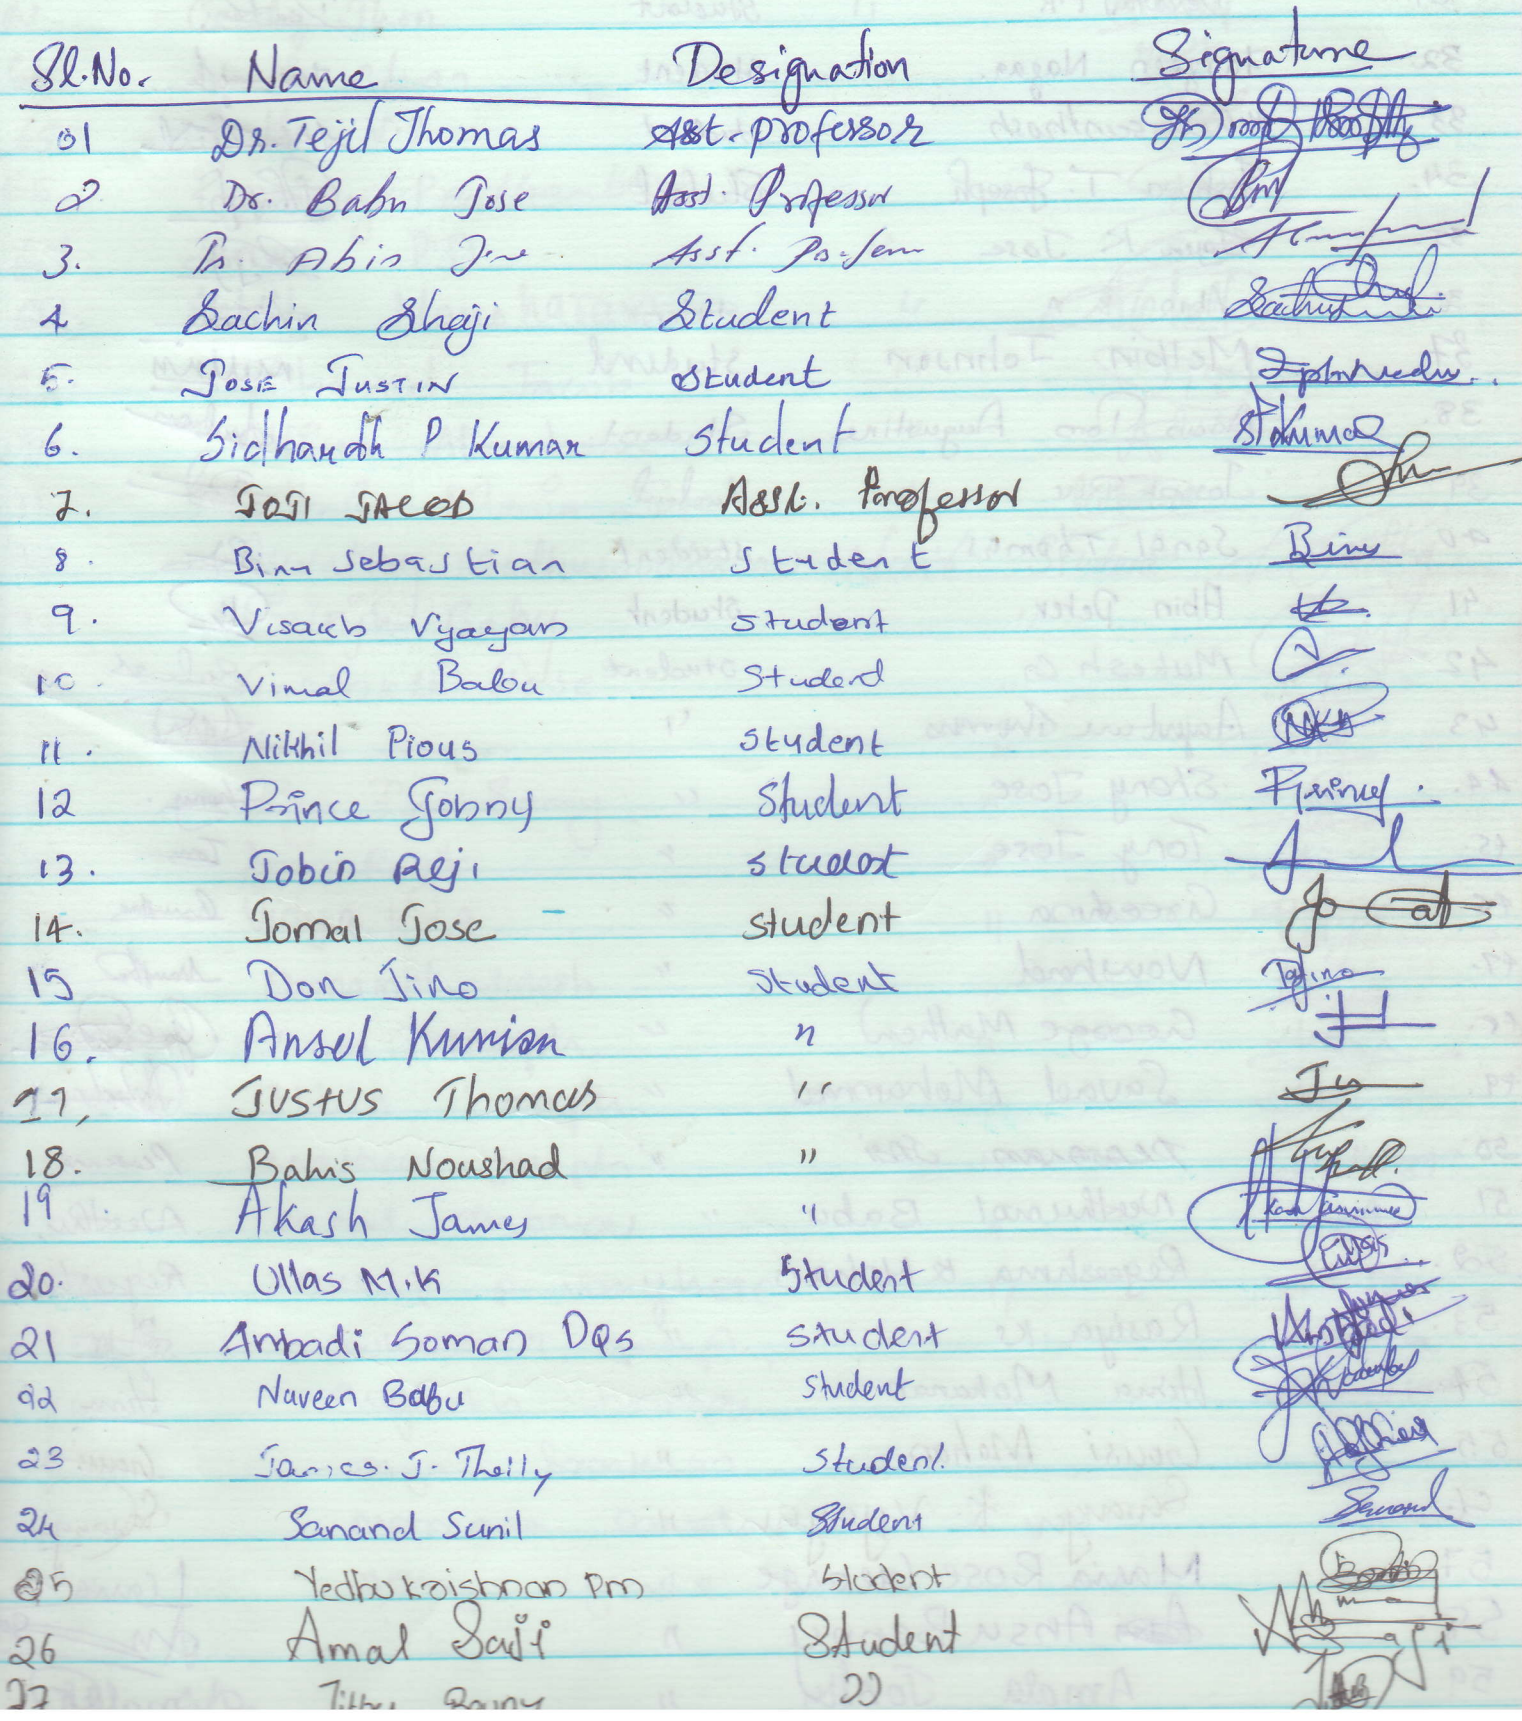 Sl.No. Name Designation Signature
01 Dr. Tejil Thomas Asst. professor
2 Dr. Babu Jose Asst. Professor
3. Dr. Abin Jose Asst. Professor
4 Sachin Shaji Student
5. JOSE JUSTIN Student
6. Sidharth P Kumar Student SPKumar
7. JOJI JACOB Asst. Professor
8. Binu Sebastian Student Binu
9. Visakh Vijayan Student
10 Vimal Babu Student
11. Nikhil Pious Student
12 Prince Jobny Student Prince
13. Jobin Reji Student
14. Jomal Jose student
15 Don Jino Student
16. Ansel Kurian "
17, JUSTUS Thomas "
18. Bahis Noushad "
19 Akash James "
20. Ullas M.K Student
21 Ambadi Soman Das Student
22 Naveen Babu Student
23 James. J. Theilly Student
24 Sanand Sunil Student Sanand
25 Yedhukrishnan PM Student
26 Amal Saji Student
27 "